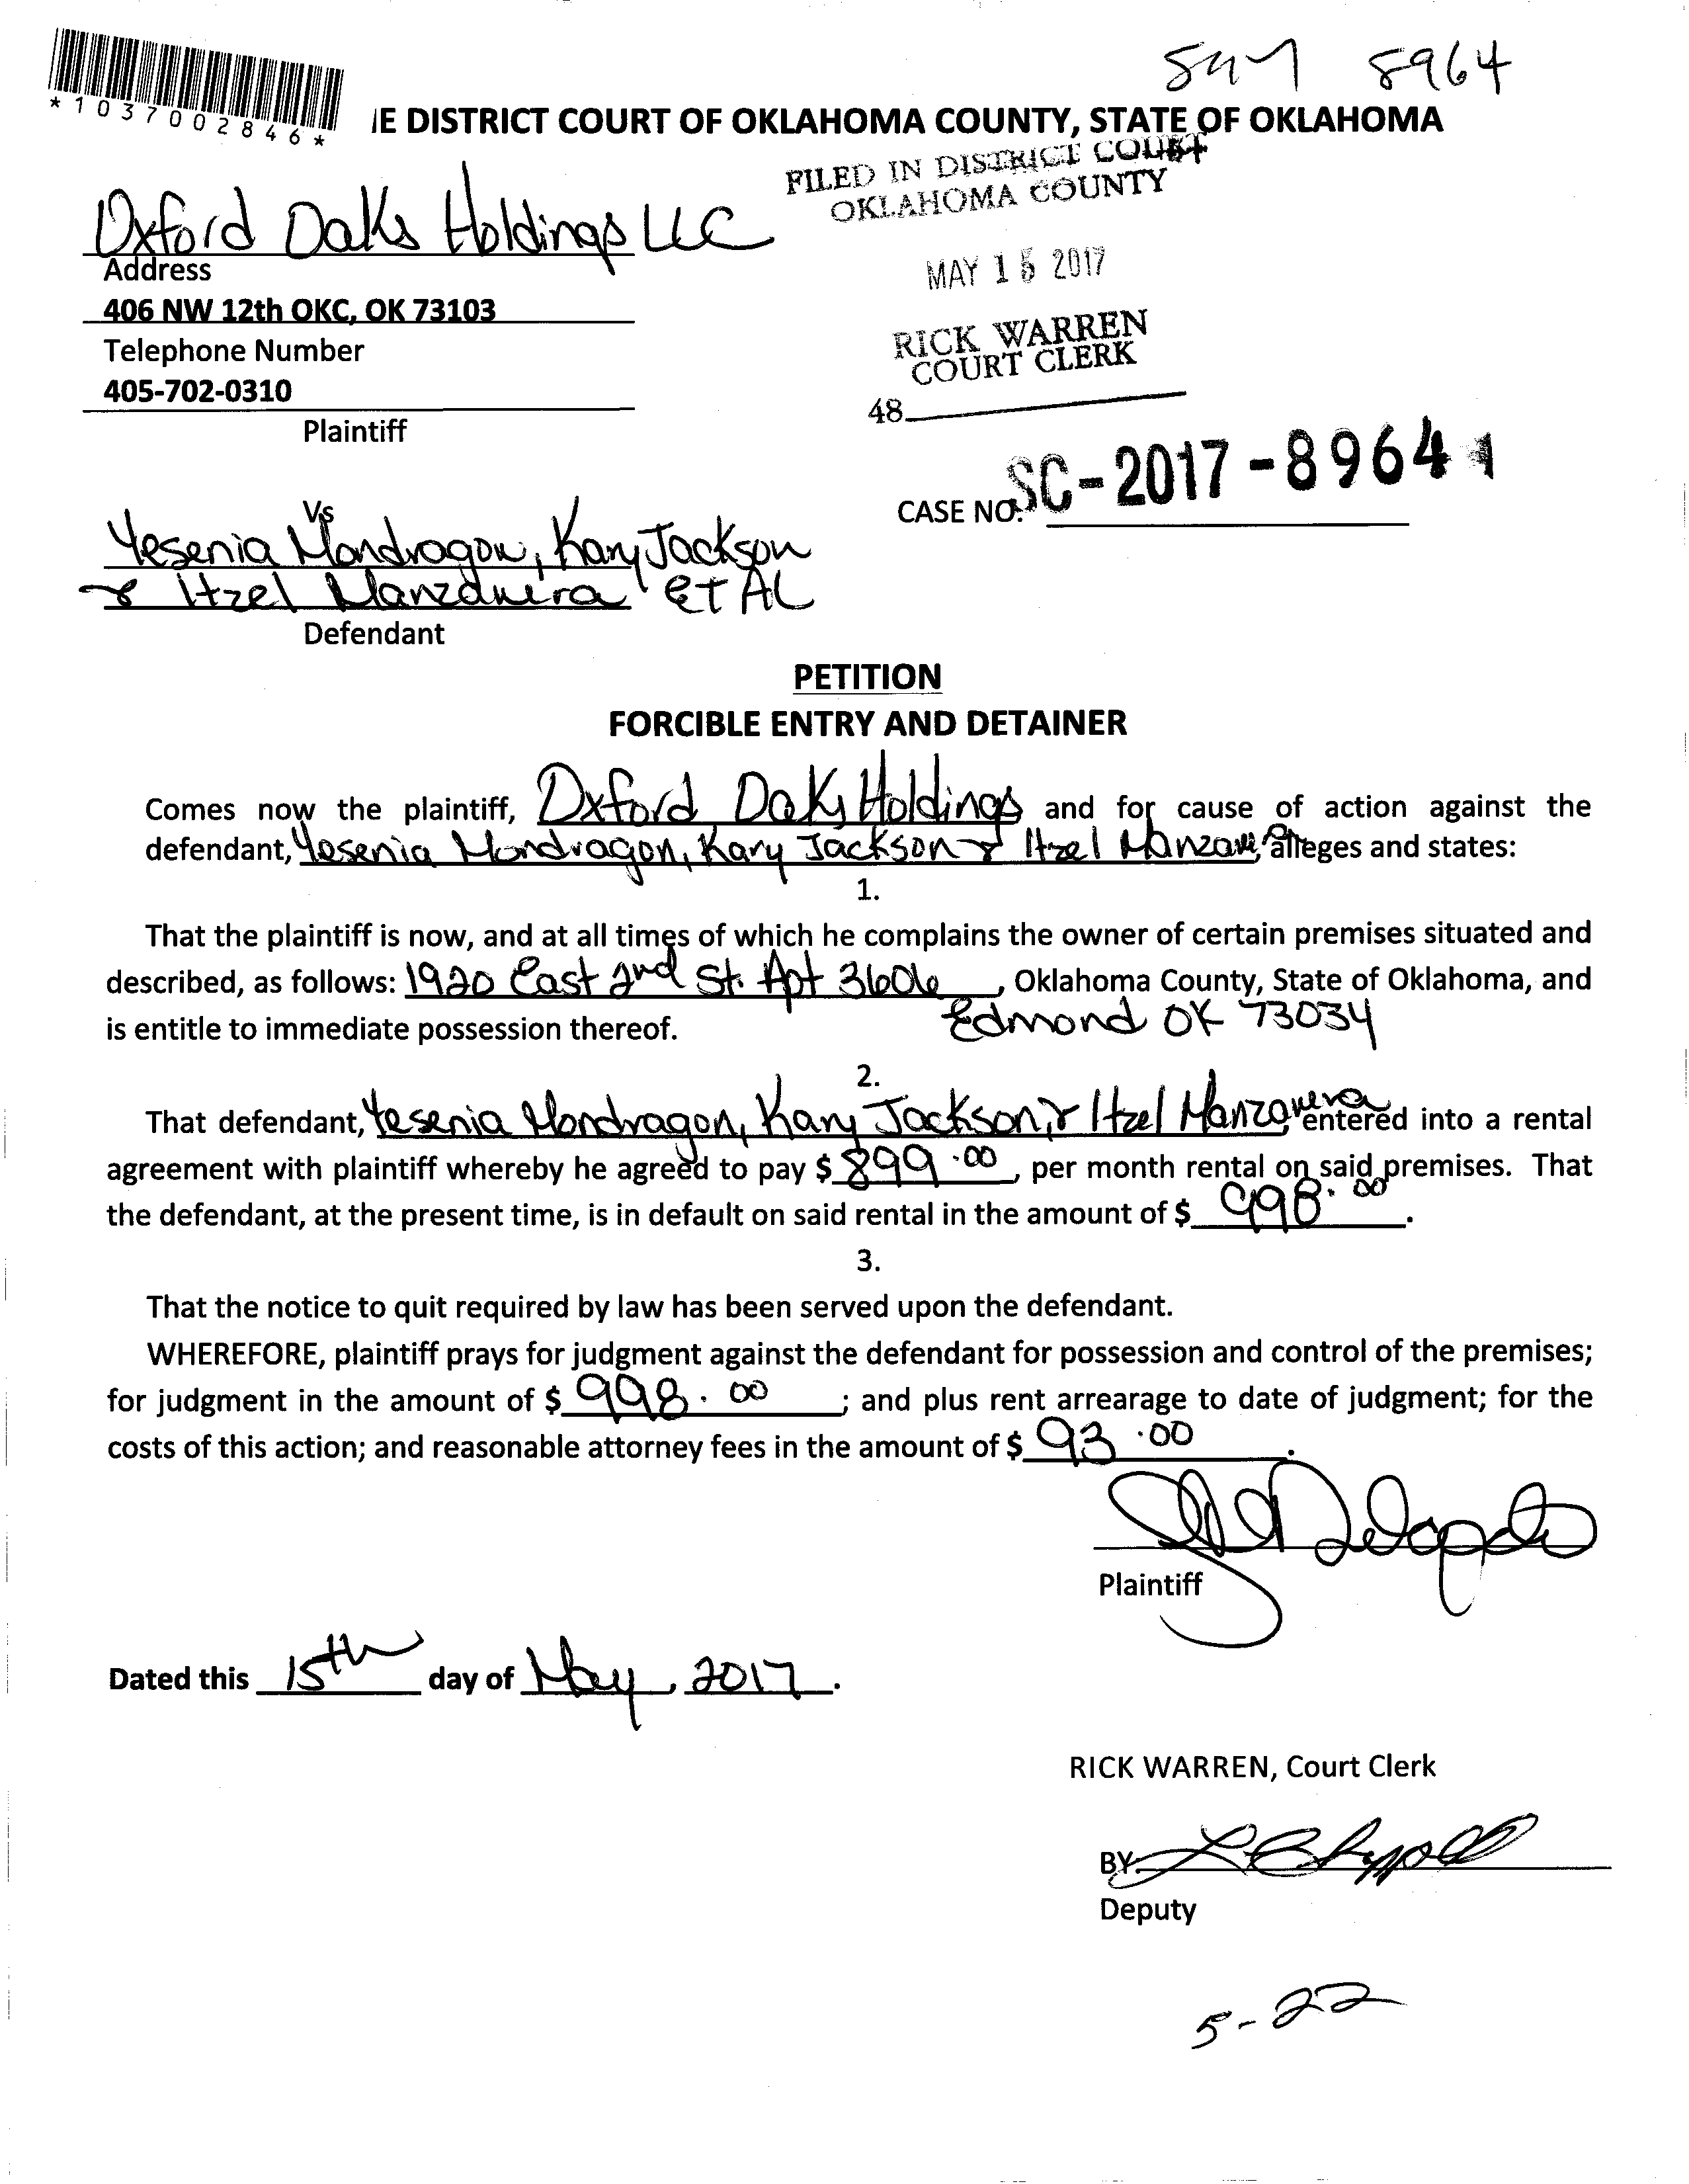 8964
*1037002846*
IE DISTRICT COURT OF OKLAHOMA COUNTY, STATE OF OKLAHOMA
FILED IN DISTRICT COURT
OKLAHOMA COUNTY
MAY 15 2017
RICK WARREN
COURT CLERK
48
Oxford Oaks Holdings LLC
Address
406 NW 12th OKC, OK 73103
Telephone Number
405-702-0310
Plaintiff
CASE NO. SC-2017-8964
Vs
Yesenia Mondragon, Kary Jackson
& Itzel Manzanera et AL
Defendant
PETITION
FORCIBLE ENTRY AND DETAINER
Comes now the plaintiff, Oxford Oaks Holdings and for cause of action against the
defendant, Yesenia Mondragon, Kary Jackson & Itzel alleges and states:
1.
That the plaintiff is now, and at all times of which he complains the owner of certain premises situated and
described, as follows: 1920 East 2nd St. Apt 3606, Oklahoma County, State of Oklahoma, and
is entitle to immediate possession thereof. Edmond OK 73034
2.
That defendant, Yesenia Mondragon, Kary Jackson, & Itzel Manzanera, entered into a rental
agreement with plaintiff whereby he agreed to pay $ 899.00, per month rental on said premises. That
the defendant, at the present time, is in default on said rental in the amount of $ 998.00.
3.
That the notice to quit required by law has been served upon the defendant.
WHEREFORE, plaintiff prays for judgment against the defendant for possession and control of the premises;
for judgment in the amount of $ 998.00; and plus rent arrearage to date of judgment; for the
costs of this action; and reasonable attorney fees in the amount of $ 93.00.
Plaintiff
Dated this 15th day of May, 2017.
RICK WARREN, Court Clerk
BY:
Deputy
5-22